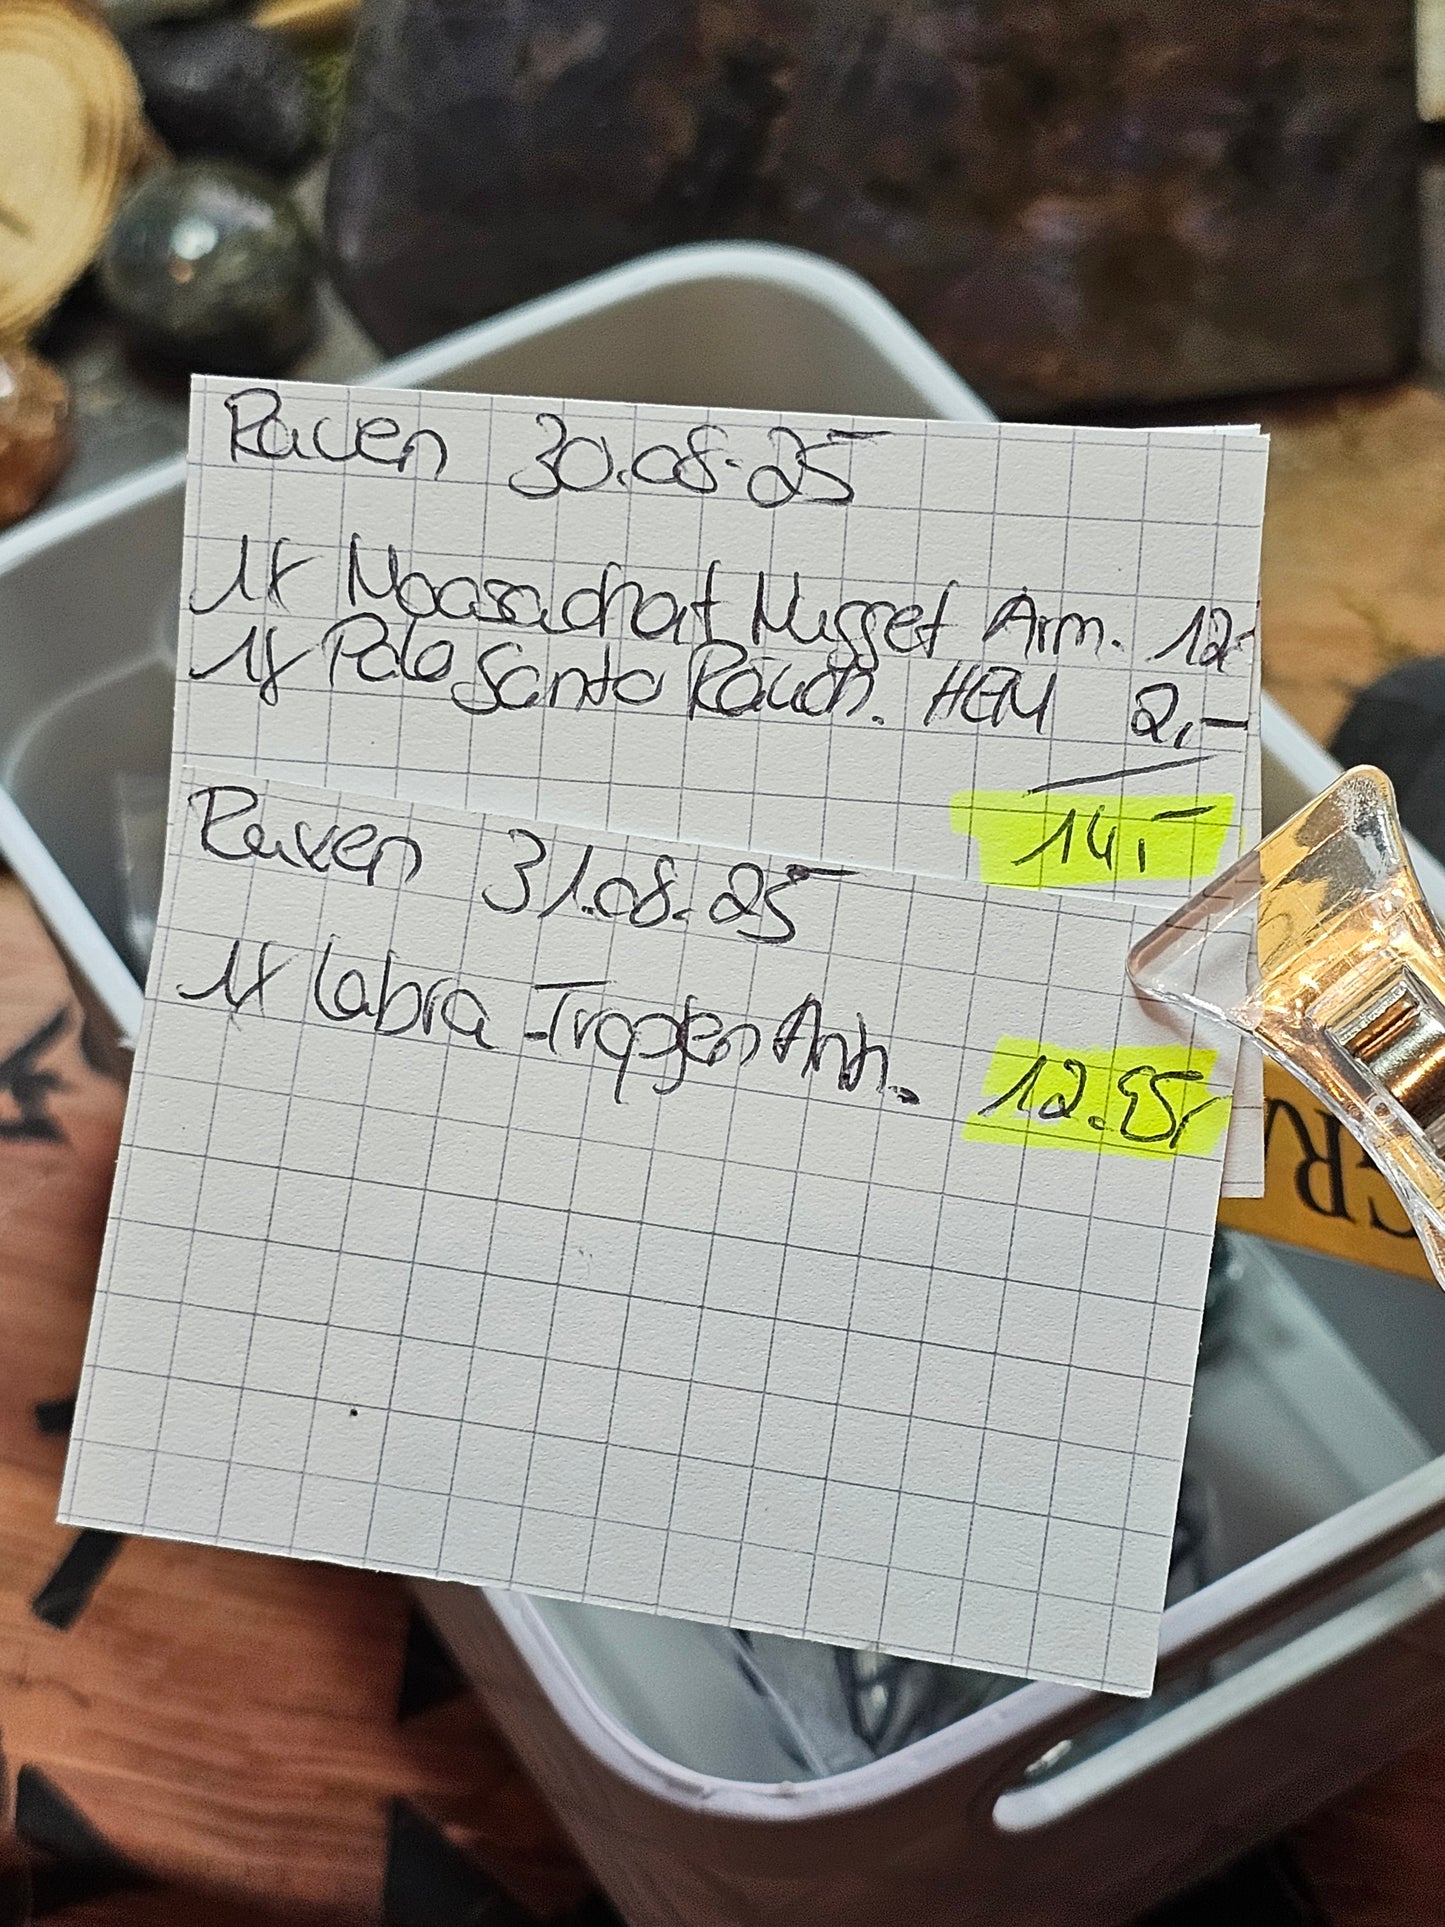 Raven 30.08.25
1x Moosachat Nugget Arm. 12,-
1x Palo Santo Räuch. HEM 2,-
14,-
Raven 31.08.25
1x Labra Tropfen Anh.